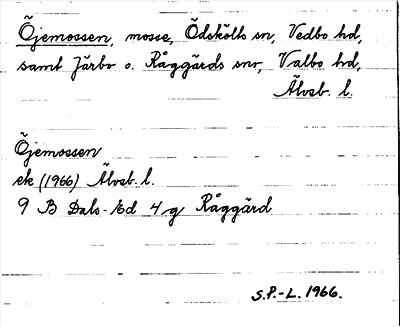 Öjemossen, mosse, Ödskölts sn, Vedbo hd,
samt Järbo o. Råggärds snr, Valbo hd,
Älvsb. l.
Öjemossen
ek (1966) Älvsb. l.
9 B Dals-Ed 4 g Råggärd
S.P.-L. 1966.